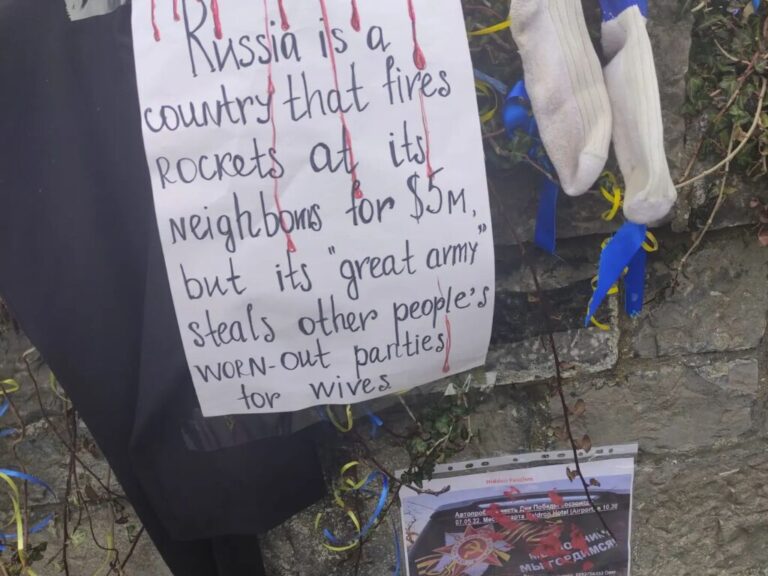 Russia is a
country that fires
rockets at its
neighboms for $5M,
but its "great army"
steals other people's
worn-out panties
for wives
Hidden
07.05.22. Hotel (Airport) в 10.30
МЫ ГОРДИМСЯ!